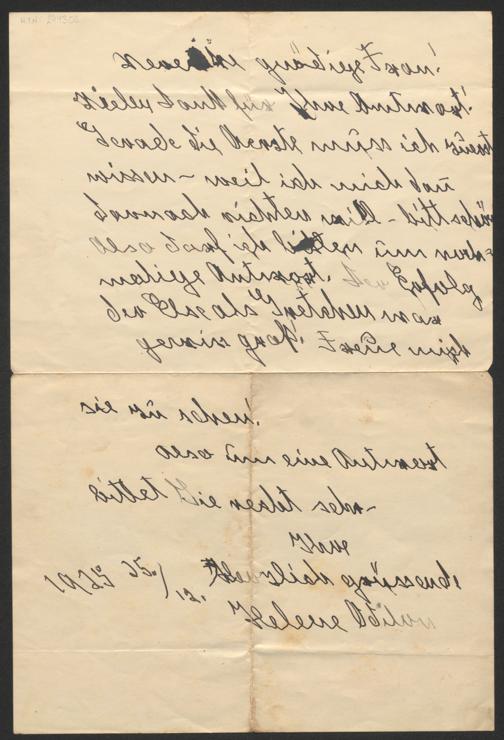 gnädige Frau!
Dank für Ihre Antwort!
Gerade die muss ich zuerst
wissen – weil ich mich
darnach richten will – bitt schön
also darf ich bitten um noch=
malige Antwort. Der Erfolg
der Elsa als Gretchen war
gewiss groß! Freue mich
sie zu sehen!
Also um eine Antwort
bittet Sie recht sehr –
Ihre
grüssende
Helene